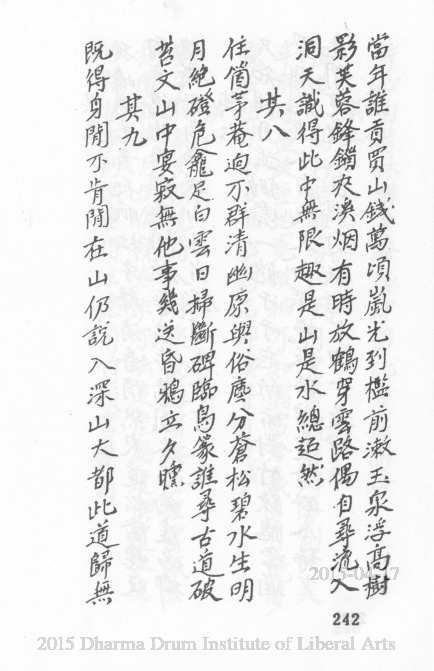 當年誰貢買山錢萬頃嵐光到檻前漱玉泉浮高樹
影芙蓉鋒鍿夾溪烟有時放鶴穿雲路偶自尋流入
洞天識得此中無限趣是山是水總超然
其八
住箇茅菴迥不群清幽原與俗塵分蒼松碧水生明
月絕磴危龕足白雲日掃斷碑臨鳥篆誰尋古道破
苔文山中宴寂無他事幾送昏鴉立夕曛
其九
既得身閒不肯閒在山仍說入深山大都此道歸無
242
2015-04-17
2015 Dharma Drum Institute of Liberal Arts